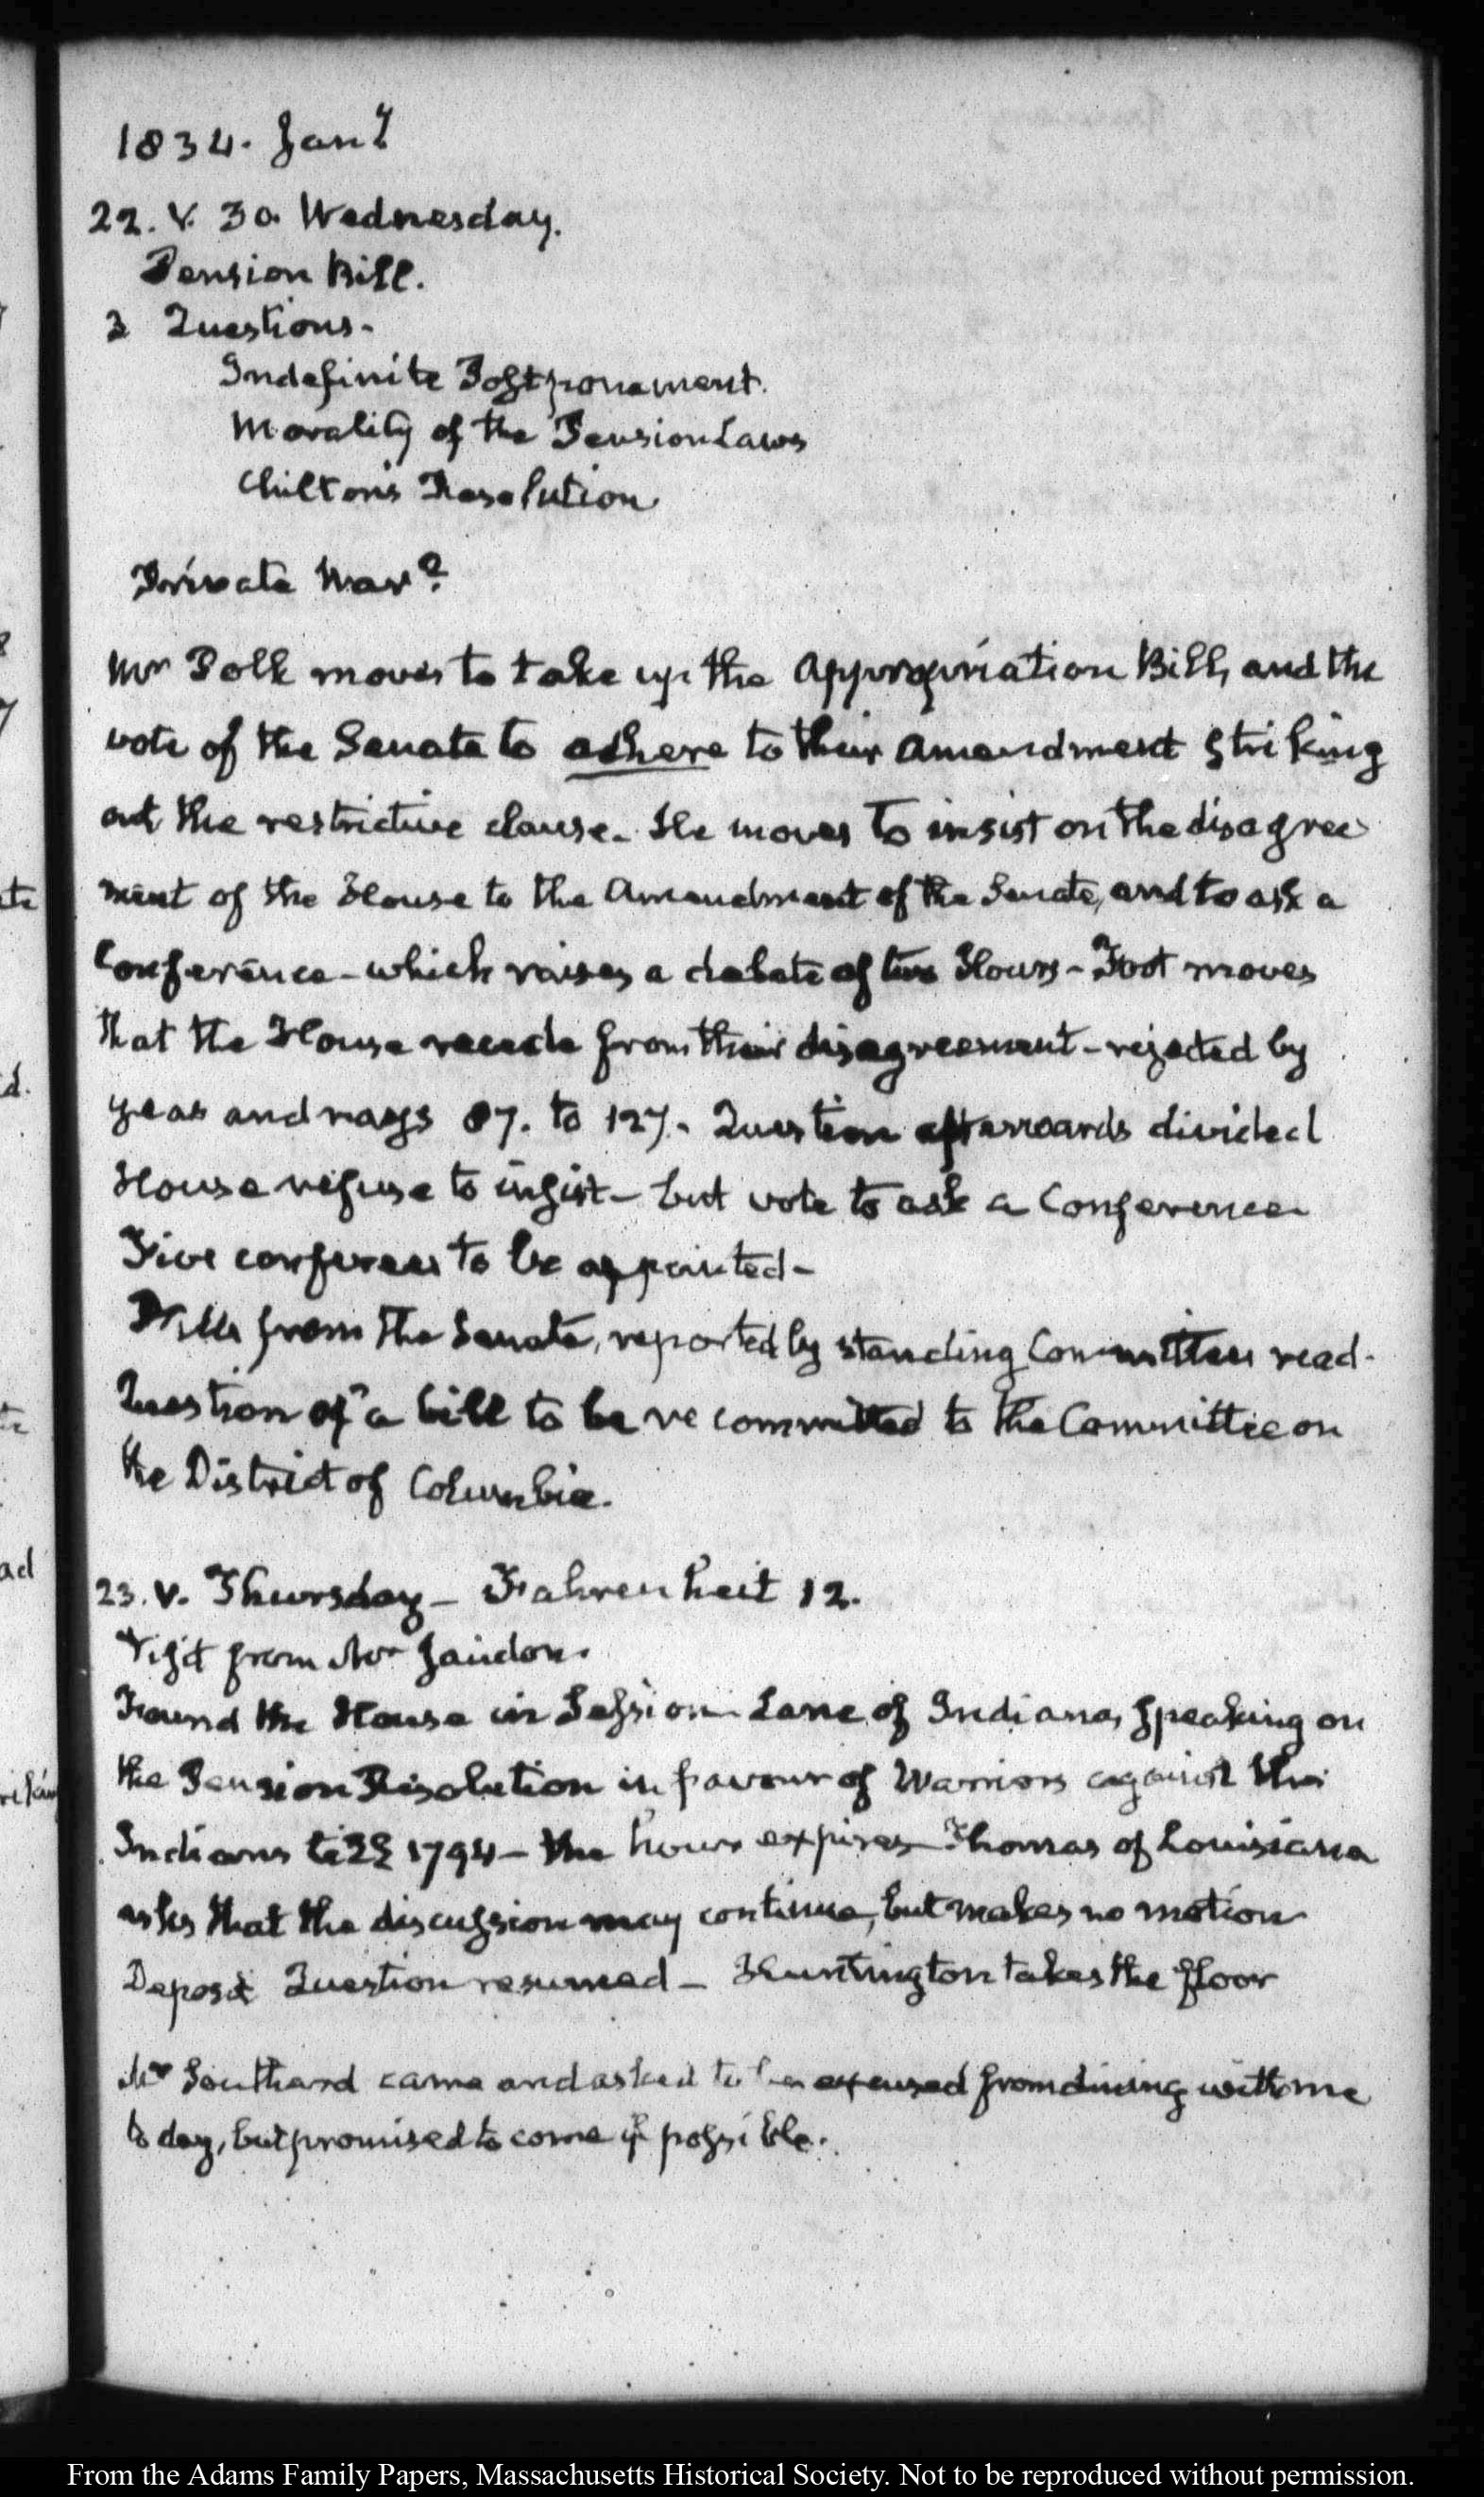 1834. Jany
22. V. 30. Wednesday.
Pension Bill.
3 Questions-
Indefinite Postponement.
Morality of the Pension Laws
Chilton's Resolution
Private War?
Mr Polk moves to take up the Appropriation Bill, and the
vote of the Senate to adhere to their amendment striking
out the restrictive clause. He moves to insist on the disagree
ment of the House to the Amendment of the Senate, and to ask a
Conference - which raises a debate of two Hours - Foot moves
that the House recede from their disagreement - rejected by
yeas and nays 87. to 127. Question afterwards divided
House refuse to insist - but vote to ask a Conference
Five conferees to be appointed -
Bills from the Senate, reported by standing Committees read.
Question of a bill to be recommitted to the Committee on
the District of Columbia.
23. V. Thursday - Fahrenheit 12.
Visit from Mr Jaudon.
Found the House in Session Lane of Indiana, speaking on
the Pension Resolution in favour of Warriors against the
Indians till 1794 - the hour expires Thomas of Louisiana
asks that the discussion may continue, but makes no motion
Deposit Question resumed - Huntington takes the floor
Mr Southard came and asked to be excused from dining with me
to day, but promised to come if possible.
From the Adams Family Papers, Massachusetts Historical Society. Not to be reproduced without permission.